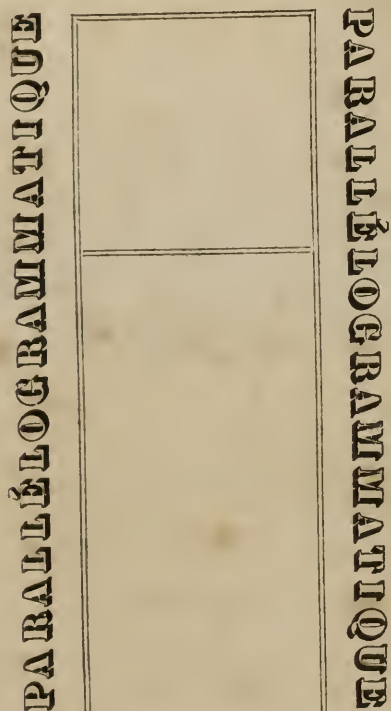 PARALLÉLOGRAMMATIQUE
PARALLÉLOGRAMMATIQUE